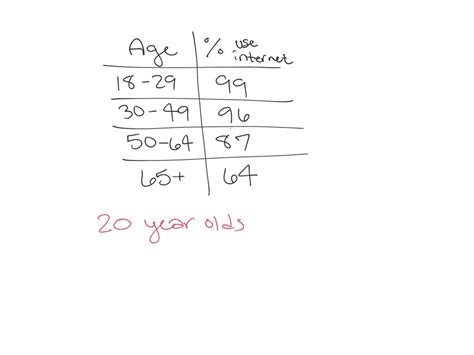 Age % use internet
18-29 99
30-49 96
50-64 87
65+ 64
20 year olds